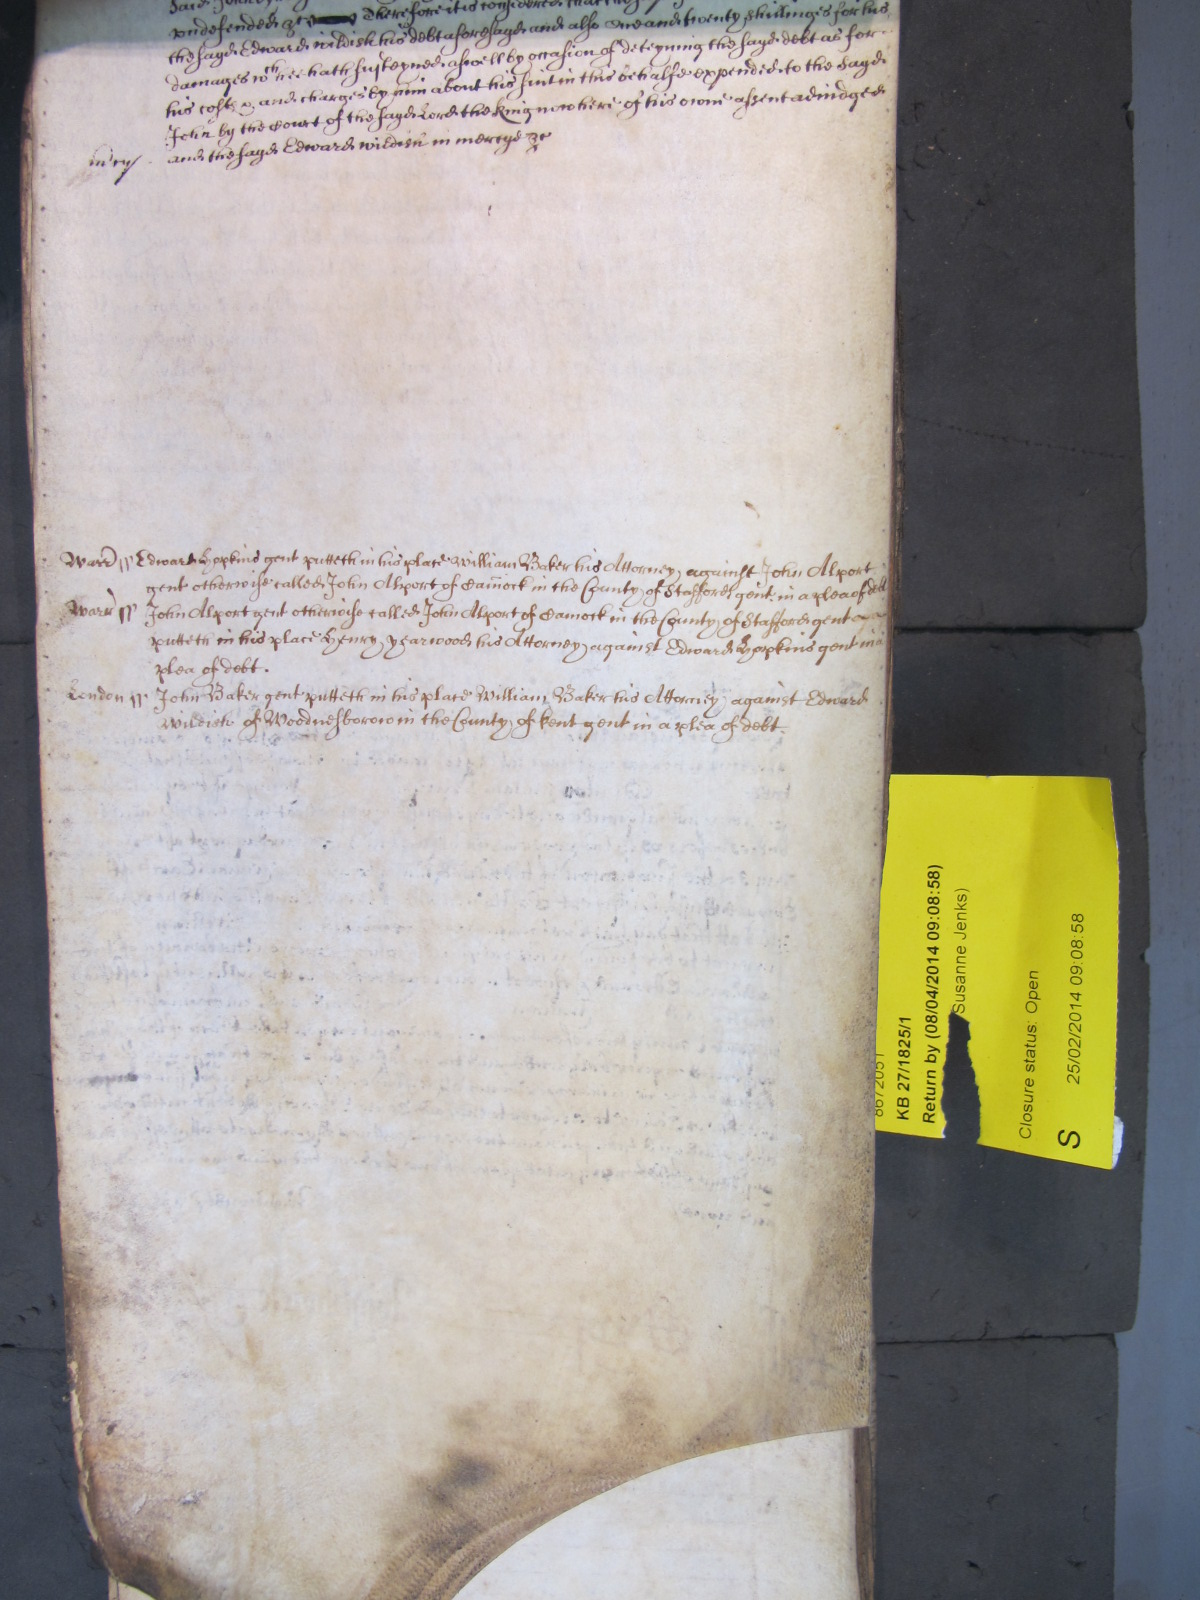 said John
undefended &c Therefore it is considered that the
the sayd Edward wildish his debt aforesayd and also One and twenty shillinges for his
damages wch hee hath susteyned aswell by occasion of deteyning the sayd debt as for
his costs and charges by him about his suit in this behalfe expended to the sayd
John by the Court of the sayd Lord the King now here of his owne assent adiudged
and the sayd Edward wildish in mercye &c
Warr ss Edward Hopkins gent putteth in his place William Baker his Attorney against John Alport
gent otherwise called John Alport of Cannock in the County of Stafford gent in a plea of debt
Warr ss John Alport gent otherwise called John Alport of Cannock in the County of Stafford gent
putteth in his place Henry yearwood his Attorney against Edward Hopkins gent in a
plea of debt.
London ss John Baker gent putteth in his place William Baker his Attorney against Edward
Wildish of Woodnesborow in the County of Kent gent in a plea of debt.
8672051
KB 27/1825/1
Return by (08/04/2014 09:08:58)
Susanne Jenks)
Closure status: Open
S 25/02/2014 09:08:58